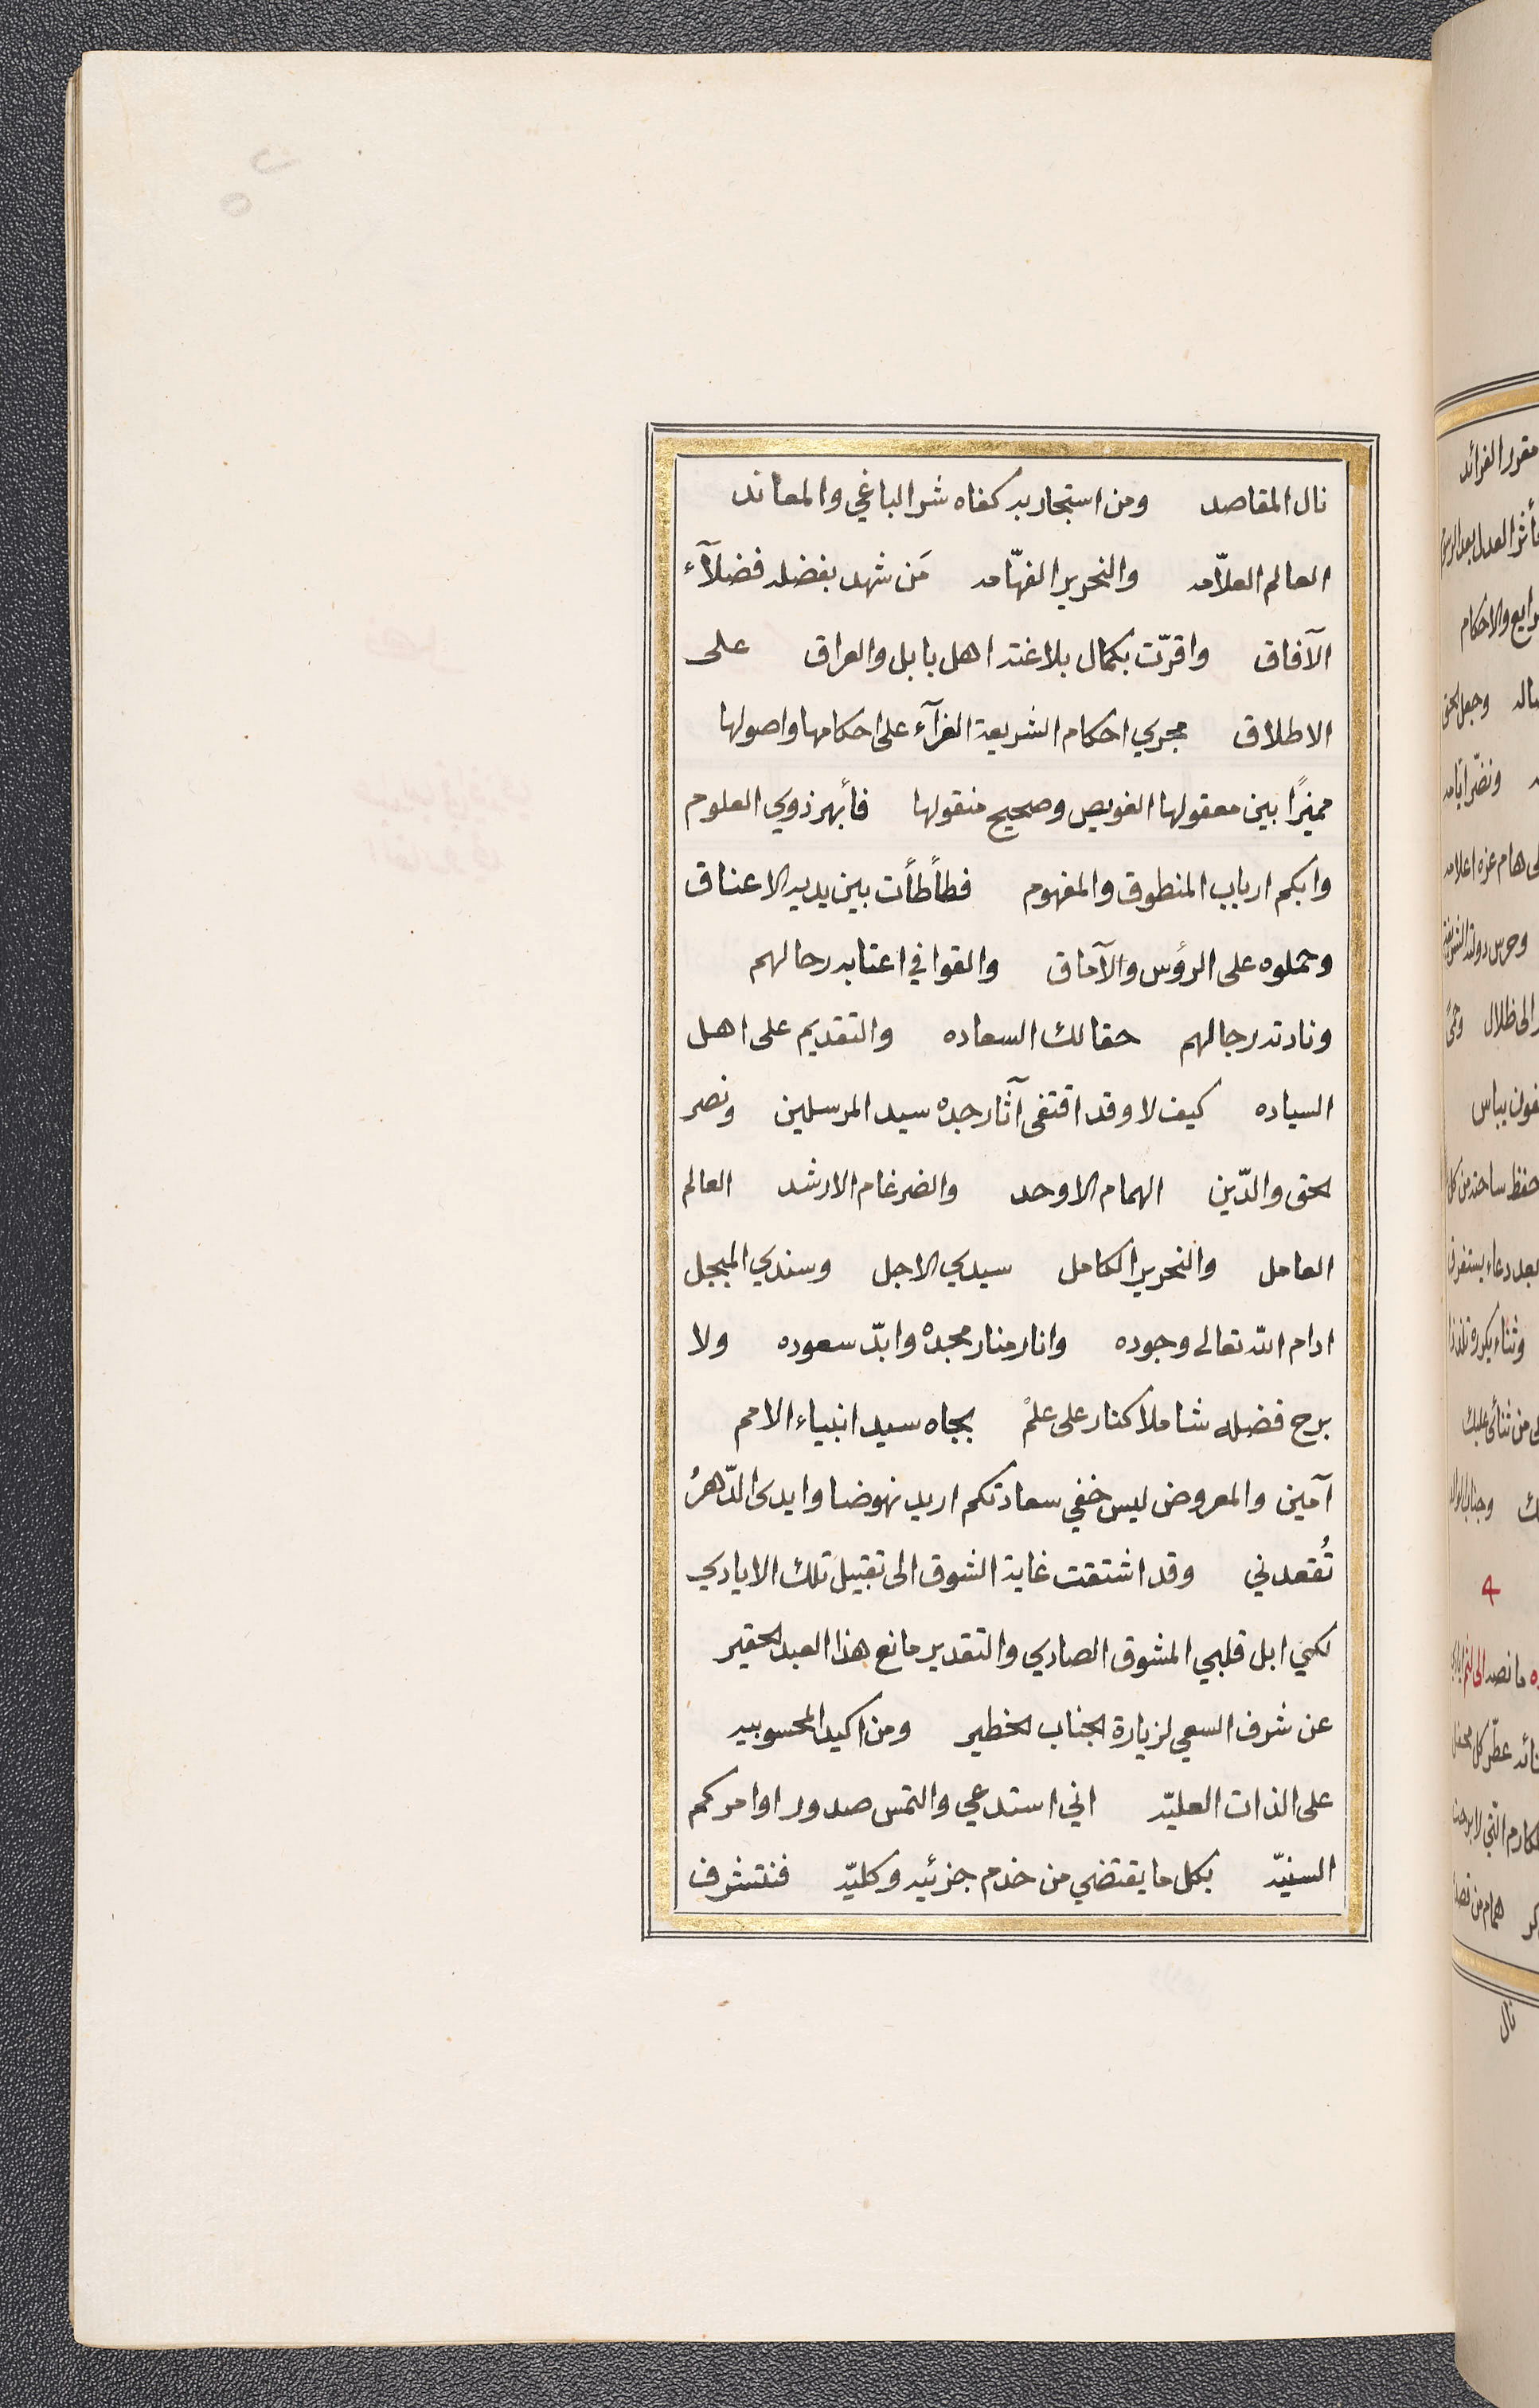 نال المقاصد ومن استجار به كفاه شر الباغي والمعاند
العالم العلّامه والنحرير الفهّامه مَن شهد بفضله فضلآء
الآفاق واقرّت بكمال بلاغته اهل بابل والعراق على
الاطلاق مجري احكام الشريعة الغرآء على احكامها واصولها
مميزًا بين معقولها العويص وصحيح منقولها فأبهر ذوي العلوم
وابكم ارباب المنطوق والمفهوم فطأطأت بين يديه الاعناق
وحملوه على الرؤس والآماق والقوا في اعتابه رحالهم
ونادته رجالهم حقا لك السعاده والتقديم على اهل
السياده كيف لا وقد اقتفى آثار جده سيد المرسلين ونصر
الحق والدّين الهمام الاوحد والضرغام الارشد العالم
العامل والنحرير الكامل سيدي الاجل وسندي المبجل
ادام الله تعالى وجوده وانار منار مجده وابدّ سعوده ولا
برح فضله شاملا كنار على علمْ بجاه سيد انبياء الامم
آمين والمعروض ليس خفي سعادتكم اريد نهوضا وايدى الدّهرُ
تُقعدني وقد اشتقت غاية الشوق الى تقبيل تلك الايادي
لكي ابل قلبي المشوق الصادي والتقدير مانع هذا العبد الحقير
عن شرف السعي لزيارة الجناب الخطير ومن اكيد المحسوبيه
على الذات العليّه اني استدعي والتمس صدور اوامركم
السنيّه بكل ما يقتضي من خدم جزئيه وكليّه فنتشرف